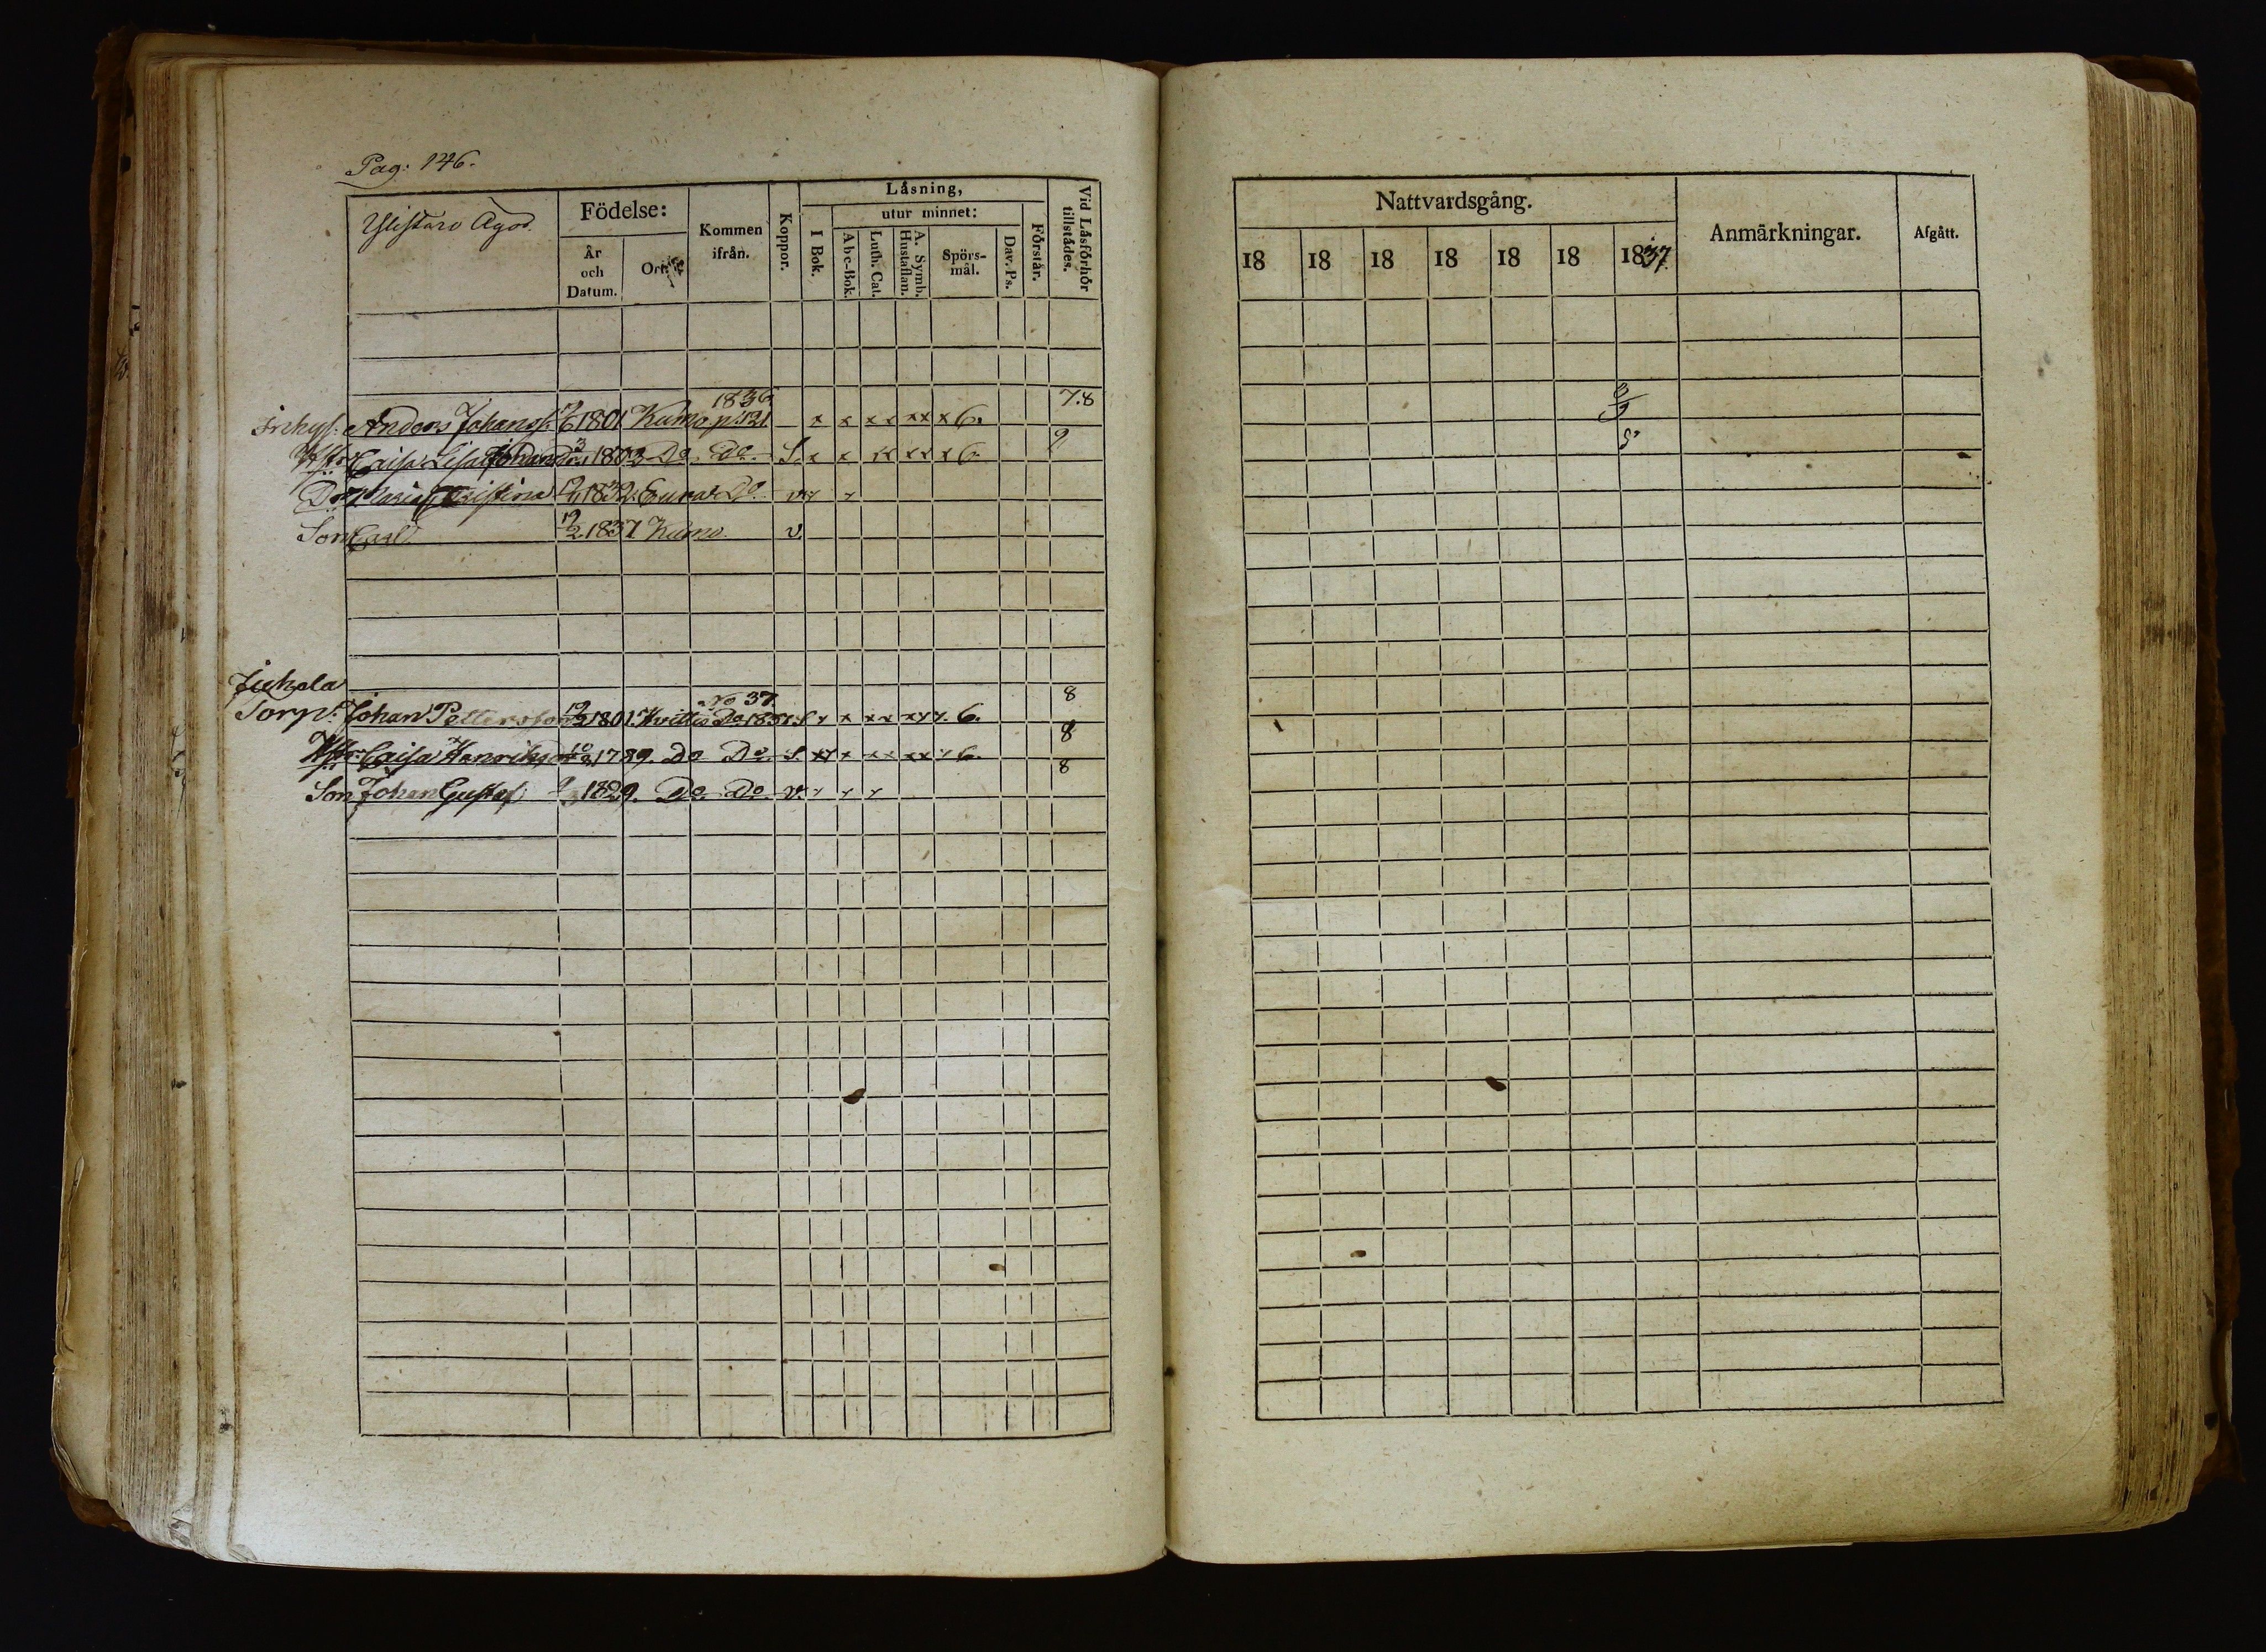 Pag: 146.
Ylistaro Ägor.
Födelse:
År och Datum.
Ort.
Kommen ifrån.
Koppor.
Låsning,
I Bok.
utur minnet:
Abc-Bok.
Luth. Cat.
A. Symb. Hustaflan.
Spörsmål.
Dav. Ps.
Förstår.
Vid Låsförhör tillstådes.
1836. 7.8
Inhys: Anders Johanss. 1801 Kumo p. 121. x x xx xx x 6.
Hstr Caisa Lisa Johansdr 1803 Do Do S. x x xx xx x 6. 9
Dr Maria Cristina 1832. Eura Do v
Son Carl 19/2 1837 Kumo. v.
Juhola
No 37. 8
Torp. Johan Pettersson 1801. Kvittis Do 1831. S x xx 6.
8
Hstr Caisa Henriksdr 1789. Do Do S. x xx xx 6.
8
Son Johan Gustaf 1829. Do. Do v.
Nattvardsgång.
18 18 18 18 18 18 1837.
Anmärkningar.
Afgått.